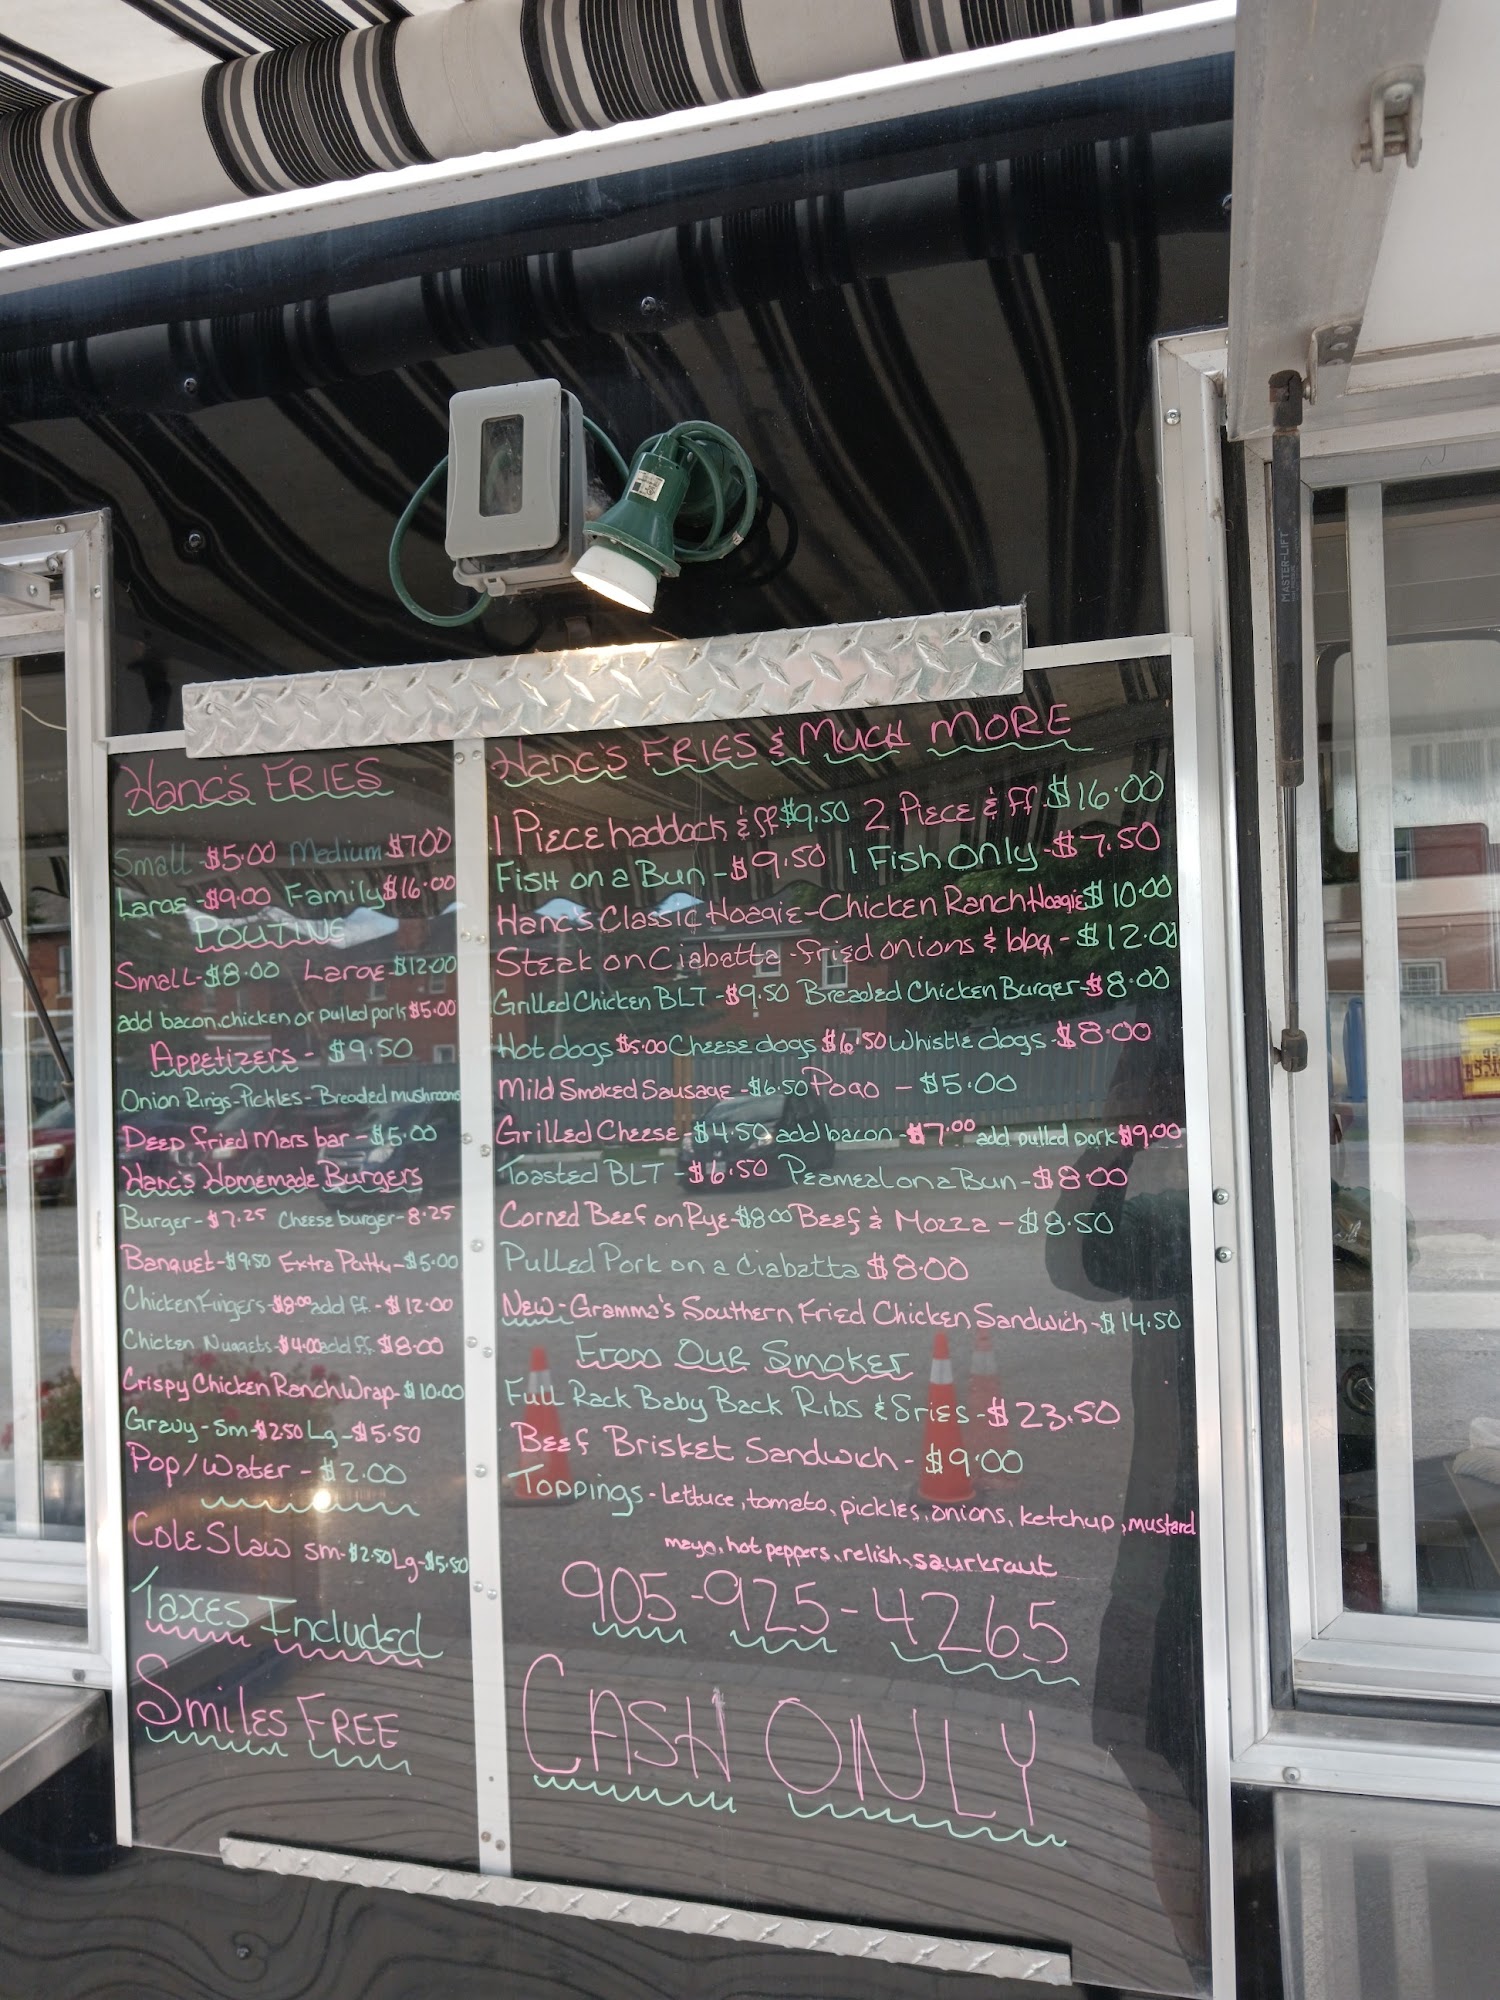 Hanc's FRIES
Small - $5.00 Medium $7.00
Large - $9.00 Family $16.00
POUTINE
Small - $8.00 Large - $12.00
add bacon, chicken or pulled pork $5.00
Appetizers - $9.50
Onion Rings - Pickles - Breaded mushrooms
Deep Fried Mars bar - $5.00
Hanc's Homemade Burgers
Burger - $7.25 Cheese burger - 8.25
Banquet - $9.50 Extra Patty - $5.00
Chicken Fingers - $8.00 add ff. - $12.00
Chicken Nuggets - $4.00 add ff. $8.00
Crispy Chicken Ranch Wrap - $10.00
Gravy - Sm $2.50 Lg - $5.50
Pop/Water - $2.00
Cole Slaw sm - $2.50 Lg - $5.50
Taxes Included
Smiles FREE
Hanc's FRIES & Much MORE
1 Piece haddock & ff $9.50 2 Piece & ff $16.00
Fish on a Bun - $9.50 1 Fish Only - $7.50
Hanc's Classic Hoagie - Chicken Ranch Hoagie $10.00
Steak on Ciabatta - fried onions & bbq - $12.00
Grilled Chicken BLT - $9.50 Breaded Chicken Burger - $8.00
Hot dogs $5.00 Cheese dogs $6.50 Whistle dogs - $8.00
Mild Smoked Sausage - $6.50 Pogo - $5.00
Grilled Cheese - $4.50 add bacon - $7.00 add pulled pork $9.00
Toasted BLT - $6.50 Peameal on a Bun - $8.00
Corned Beef on Rye - $8.00 Beef & Mozza - $8.50
Pulled Pork on a Ciabatta $8.00
New - Gramma's Southern Fried Chicken Sandwich - $14.50
From Our Smoker
Full Rack Baby Back Ribs & Fries - $23.50
Beef Brisket Sandwich - $9.00
Toppings - Lettuce, tomato, pickles, onions, ketchup, mustard
mayo, hot peppers, relish, saurkraut
905-925-4265
CASH ONLY
MASTER-LIFT